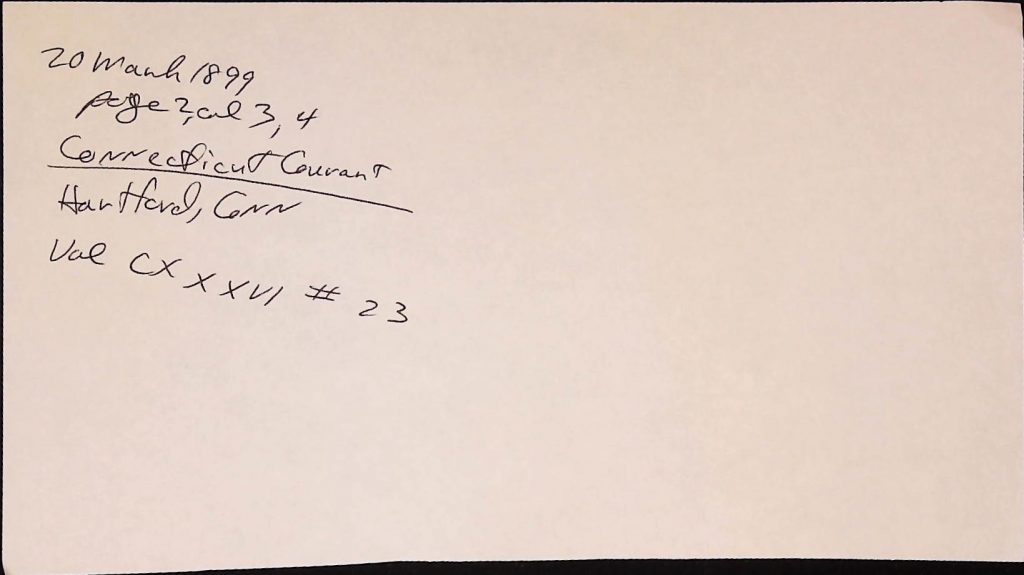 20 March 1899
page 2, col 3, 4
Connecticut Courant
Hartford, Conn
Vol CXXXXVI # 23